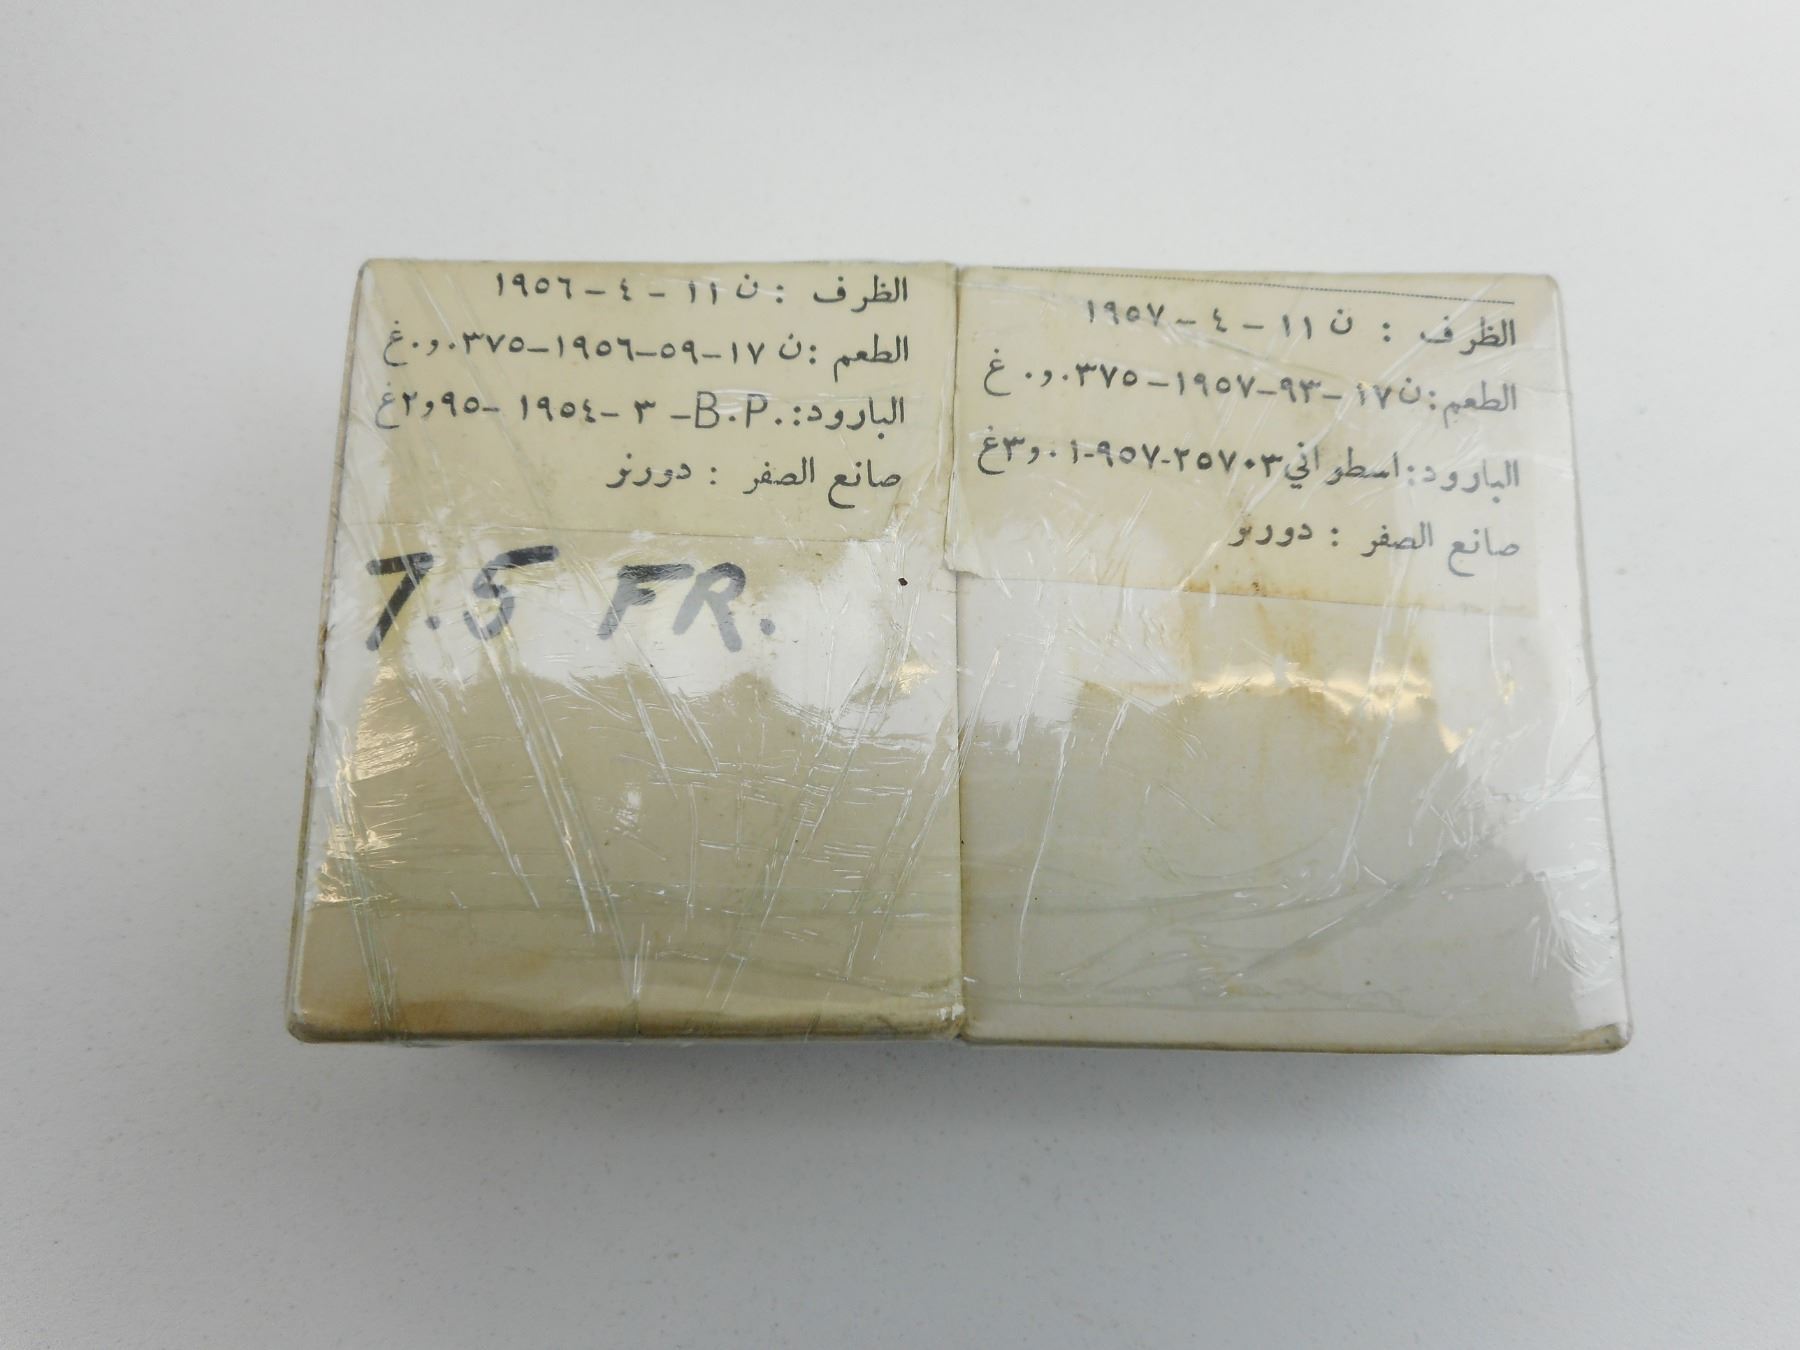 الظرف : ن ١١ - ٤ - ١٩٥٦
الطعم : ن ١٧-٥٩-١٩٥٦-٠٫٠٣٧٥ غ
البارود: .B.P- ٣ -١٩٥٤ -٢٫٩٥غ
صانع الصفر : دورنو
7.5 FR.
الظرف : ن ١١ - ٤ - ١٩٥٧
الطعم : ن ١٧-٩٣-١٩٥٧-٠٫٠٣٧٥ غ
البارود: اسطواني ٢٥٧٠٣-٩٥٧-٣٫٠١غ
صانع الصفر : دورنو